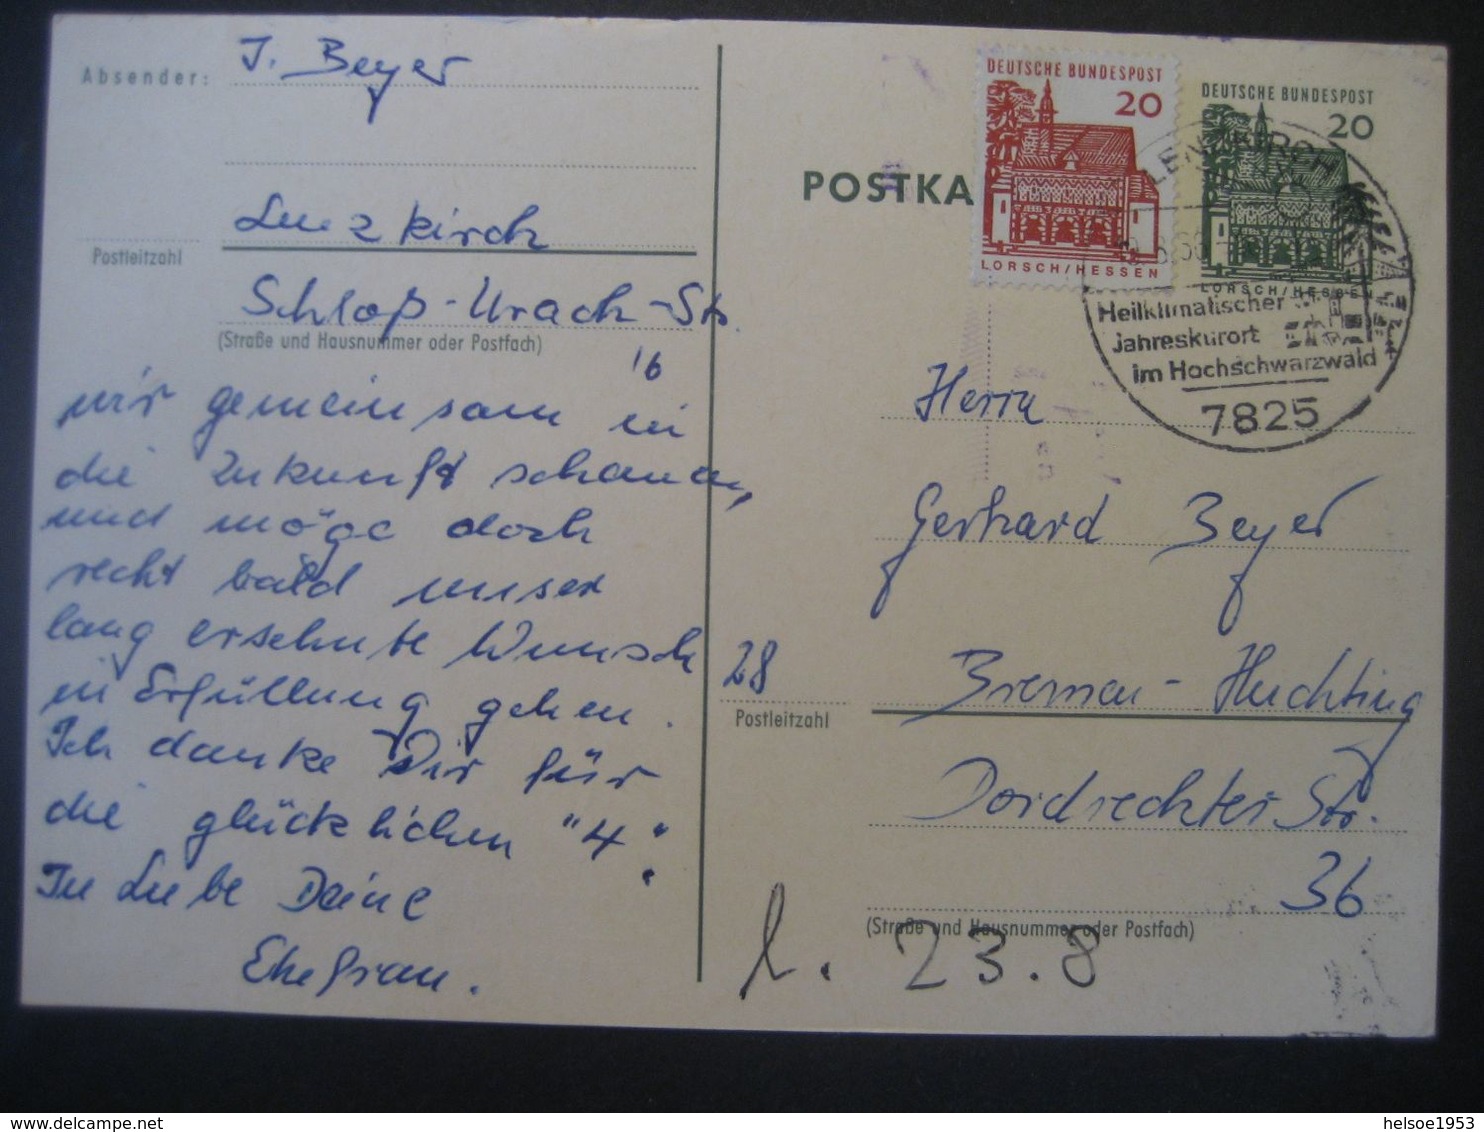 Absender: J. Beyer
Lenzkirch
Postleitzahl
Schloß-Urach-Str.
(Straße und Hausnummer oder Postfach)
16
wir gemeinsam in
die Zukunft schauen,
und möge doch
recht bald unser
lang ersehnte Wunsch
in Erfüllung gehen.
Ich danke Dir für
die glücklichen "4".
In Liebe Deine
Ehefrau.
POSTKA
DEUTSCHE BUNDESPOST
20
LORSCH/HESSEN
DEUTSCHE BUNDESPOST
20
LORSCH/HESSEN
LENZKIRCH
Heilklimatischer
Jahreskurort
im Hochschwarzwald
7825
Herrn
Gerhard Beyer
28 Bremen-Huchting
Postleitzahl
Dordrechter Str.
36
(Straße und Hausnummer oder Postfach)
l. 23.8
delcampe.net
helsoe1953